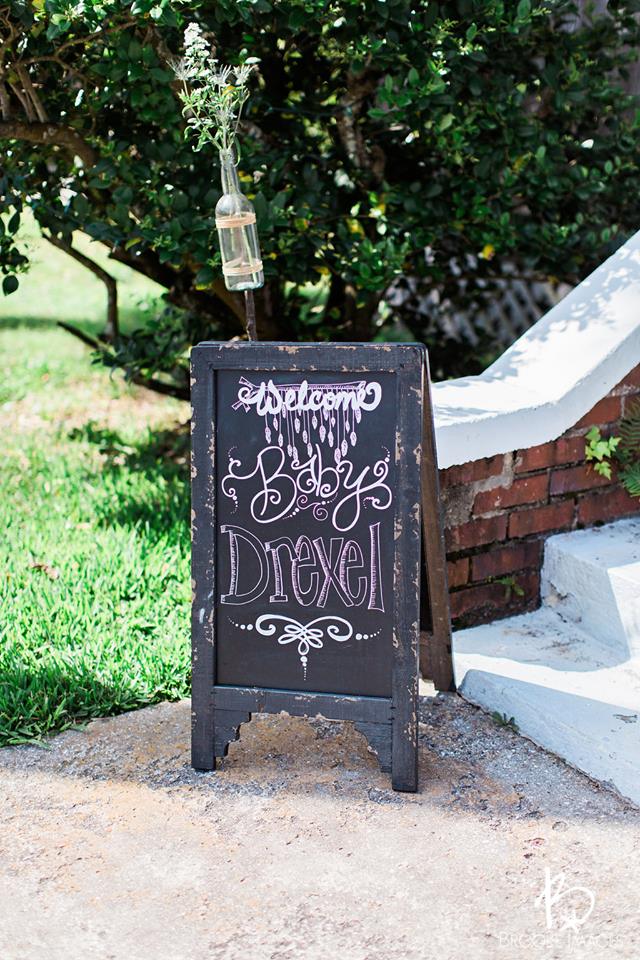 Welcome
Baby
Drexel
B
BROOKE IMAGES